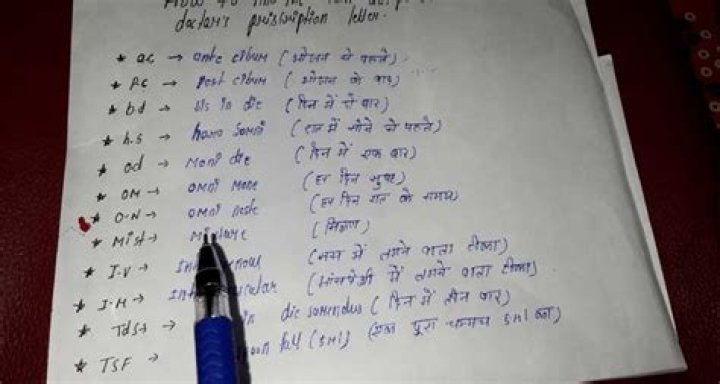 doctar's priscription letter.
* ac → ante cibum ( भोजन से पहले )
* Pc → Post cibum ( भोजन के बाद )
* bd → bis in die ( दिन में दो बार )
* h.s → hora somni ( रात में सोने से पहले )
* od → Moni die ( दिन में एक बार )
* OM → omni mane ( हर दिन सुबह )
* O-N → omni nocte ( हर दिन रात के समय )
* Mist → Mixture ( मिश्रण )
* I-V → ( नस में लगने वाला टीका )
* I-M → ( मांसपेशी में लगने वाला टीका )
* Tds → in die sumendus ( दिन में तीन बार )
* TSF → full (5ml) ( एक पूरा चम्मच 5ml का )